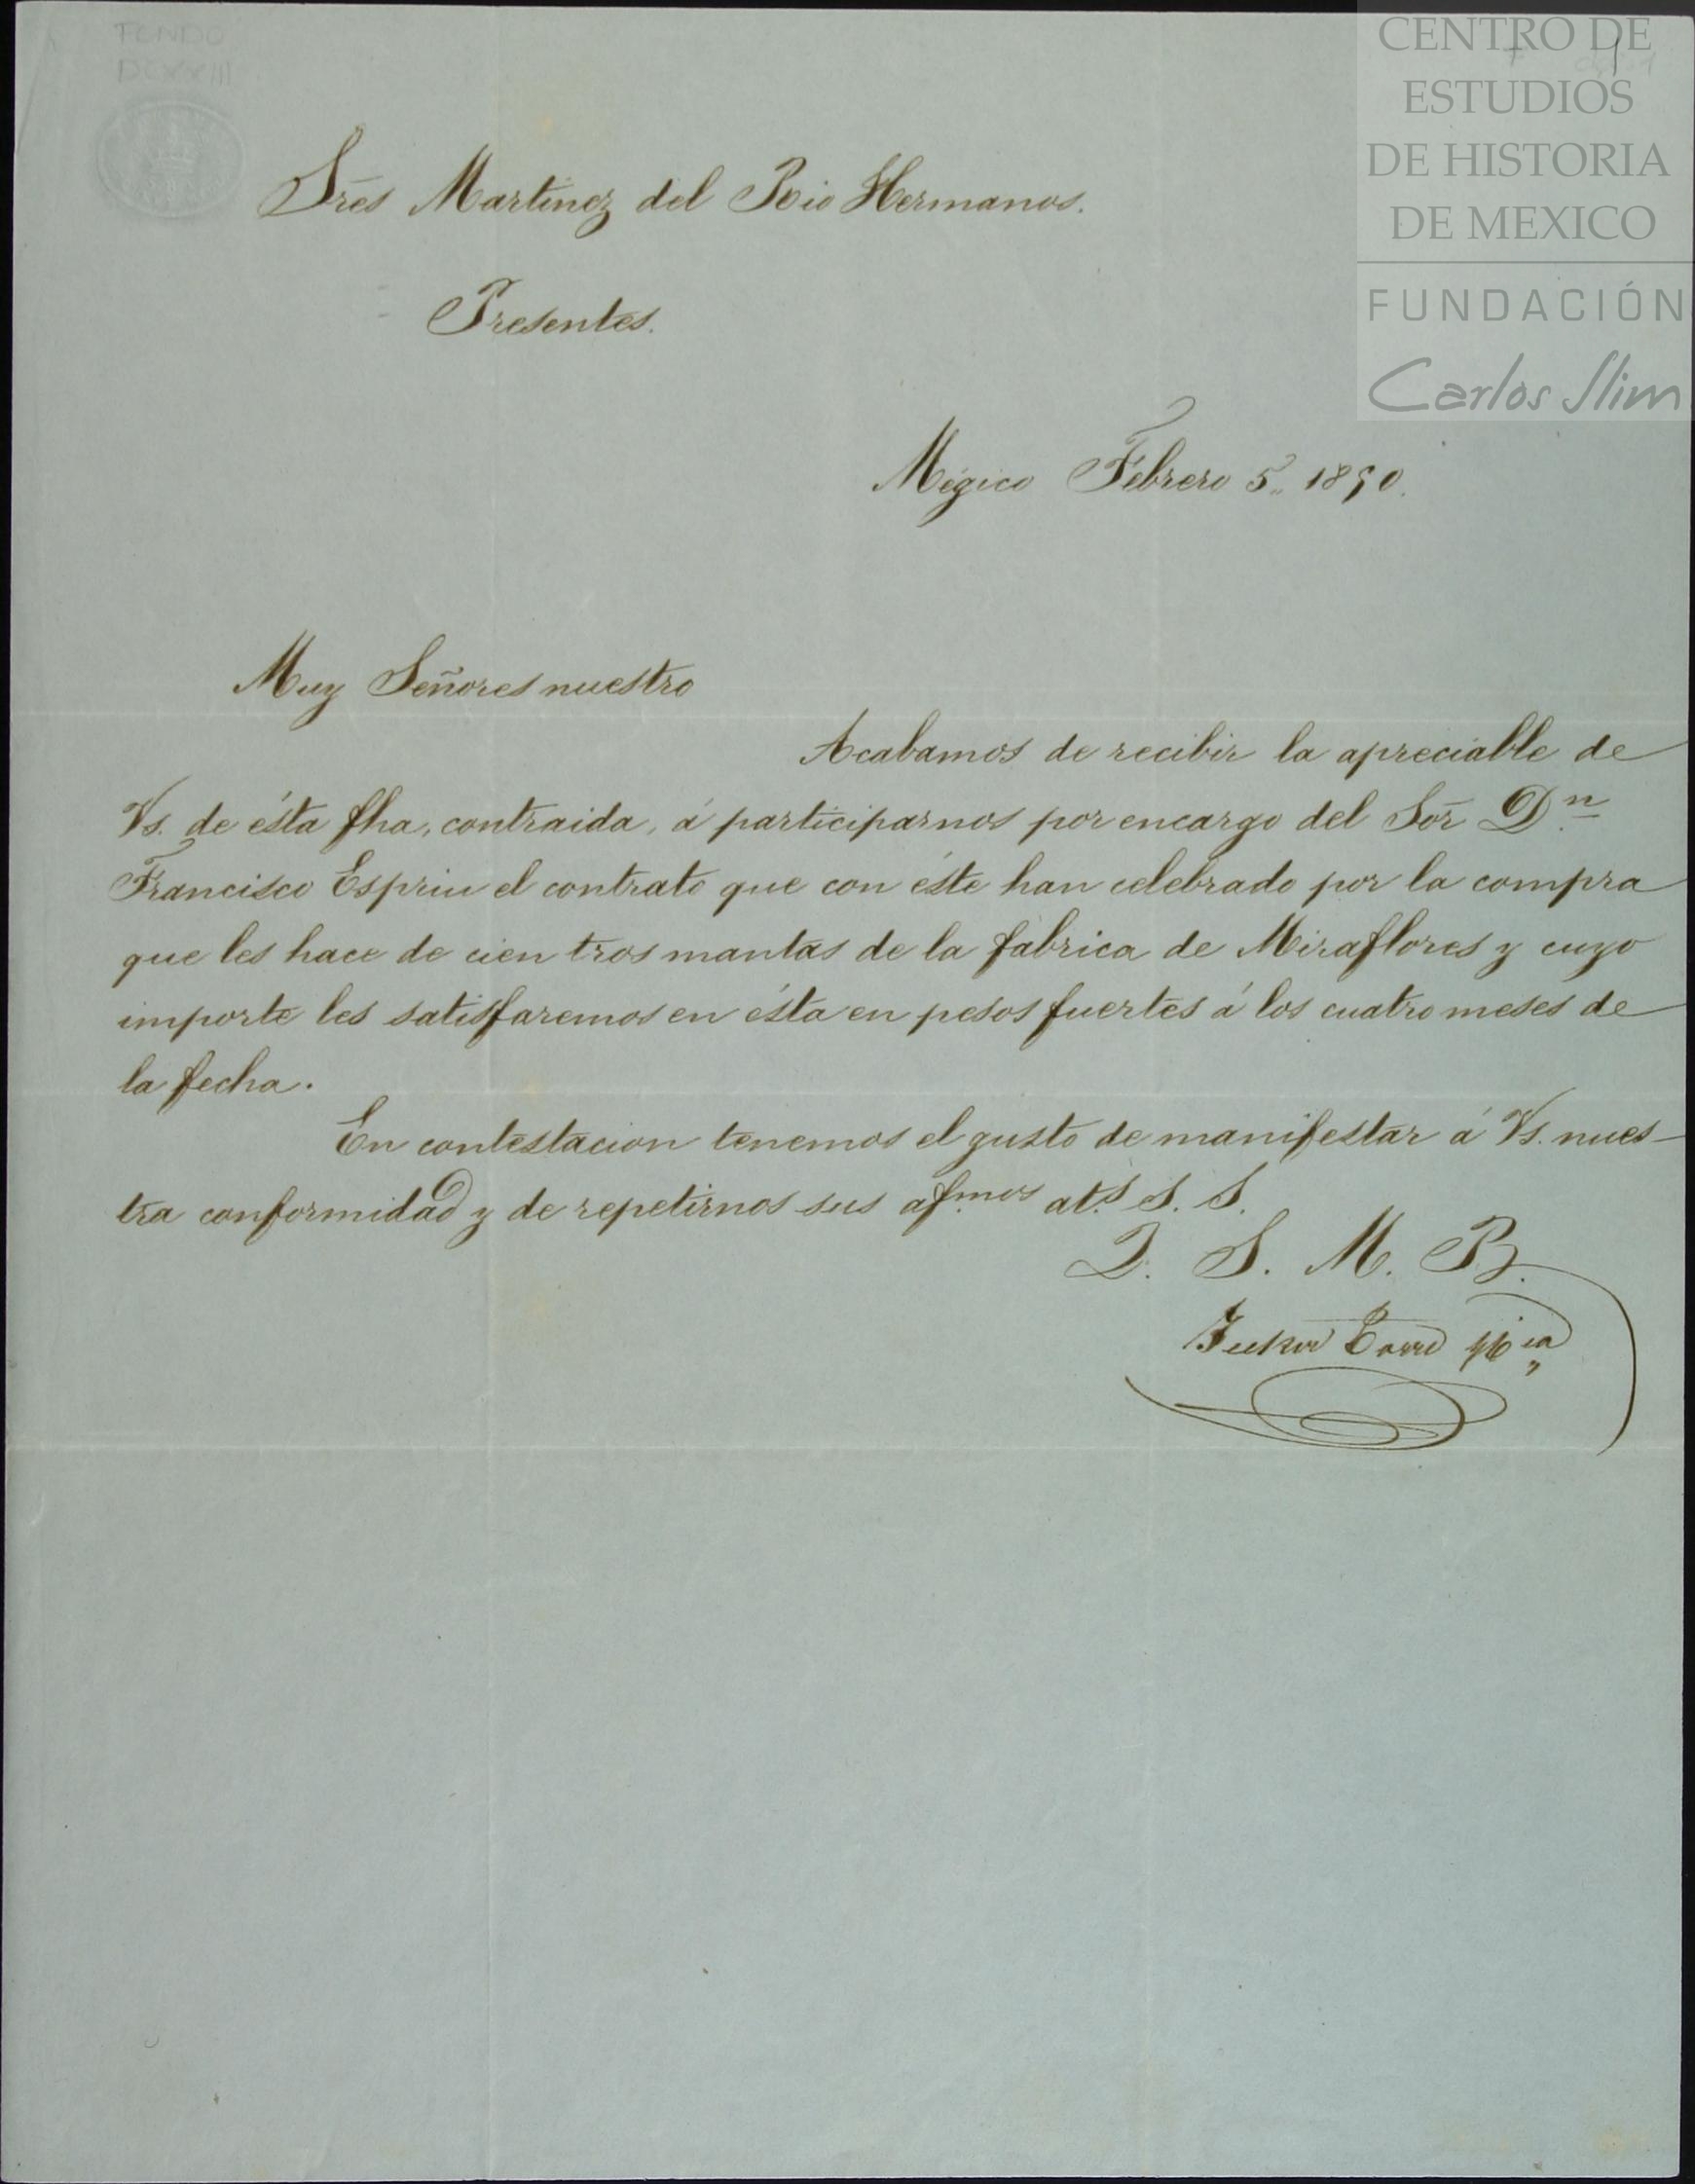 FONDO
DCXXIII
CENTRO DE
ESTUDIOS
DE HISTORIA
DE MEXICO
FUNDACIÓN
Carlos Slim
Sres Martinez del Rio Hermanos.
Presentes.
Mégico Febrero 5.. 1850.
Muy Señores nuestro
Acabamos de recibir la apreciable de
Vs. de ésta fha, contraida, á participarnos por encargo del Sor Dn.
Francisco Espriu el contrato que con éste han celebrado por la compra
que les hace de cien tros mantas de la fábrica de Miraflores y cuyo
importe les satisfaremos en ésta en pesos fuertes á los cuatro meses de
la fecha.
En contestacion tenemos el gusto de manifestar á Vs. nues-
tra conformidad y de repetirnos sus af.mos at.s S. S.
Q. S. M. B.
Torre y Cia